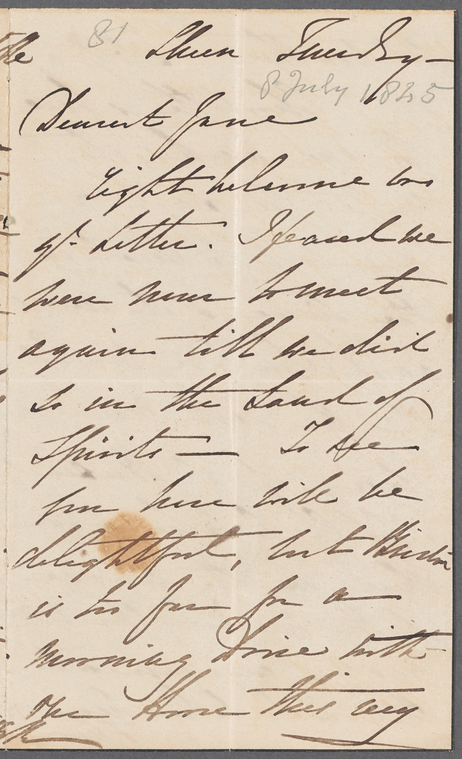 81
Sheen Tuesday —
8 July 1845
Dearest Jane
right welcome was
yr. Letter. I feared we
were never to meet
again till we did
so in the Land of
Spirits — To see
you here will be
delightful, but
is too far for a
morning drive with
one Horse this very